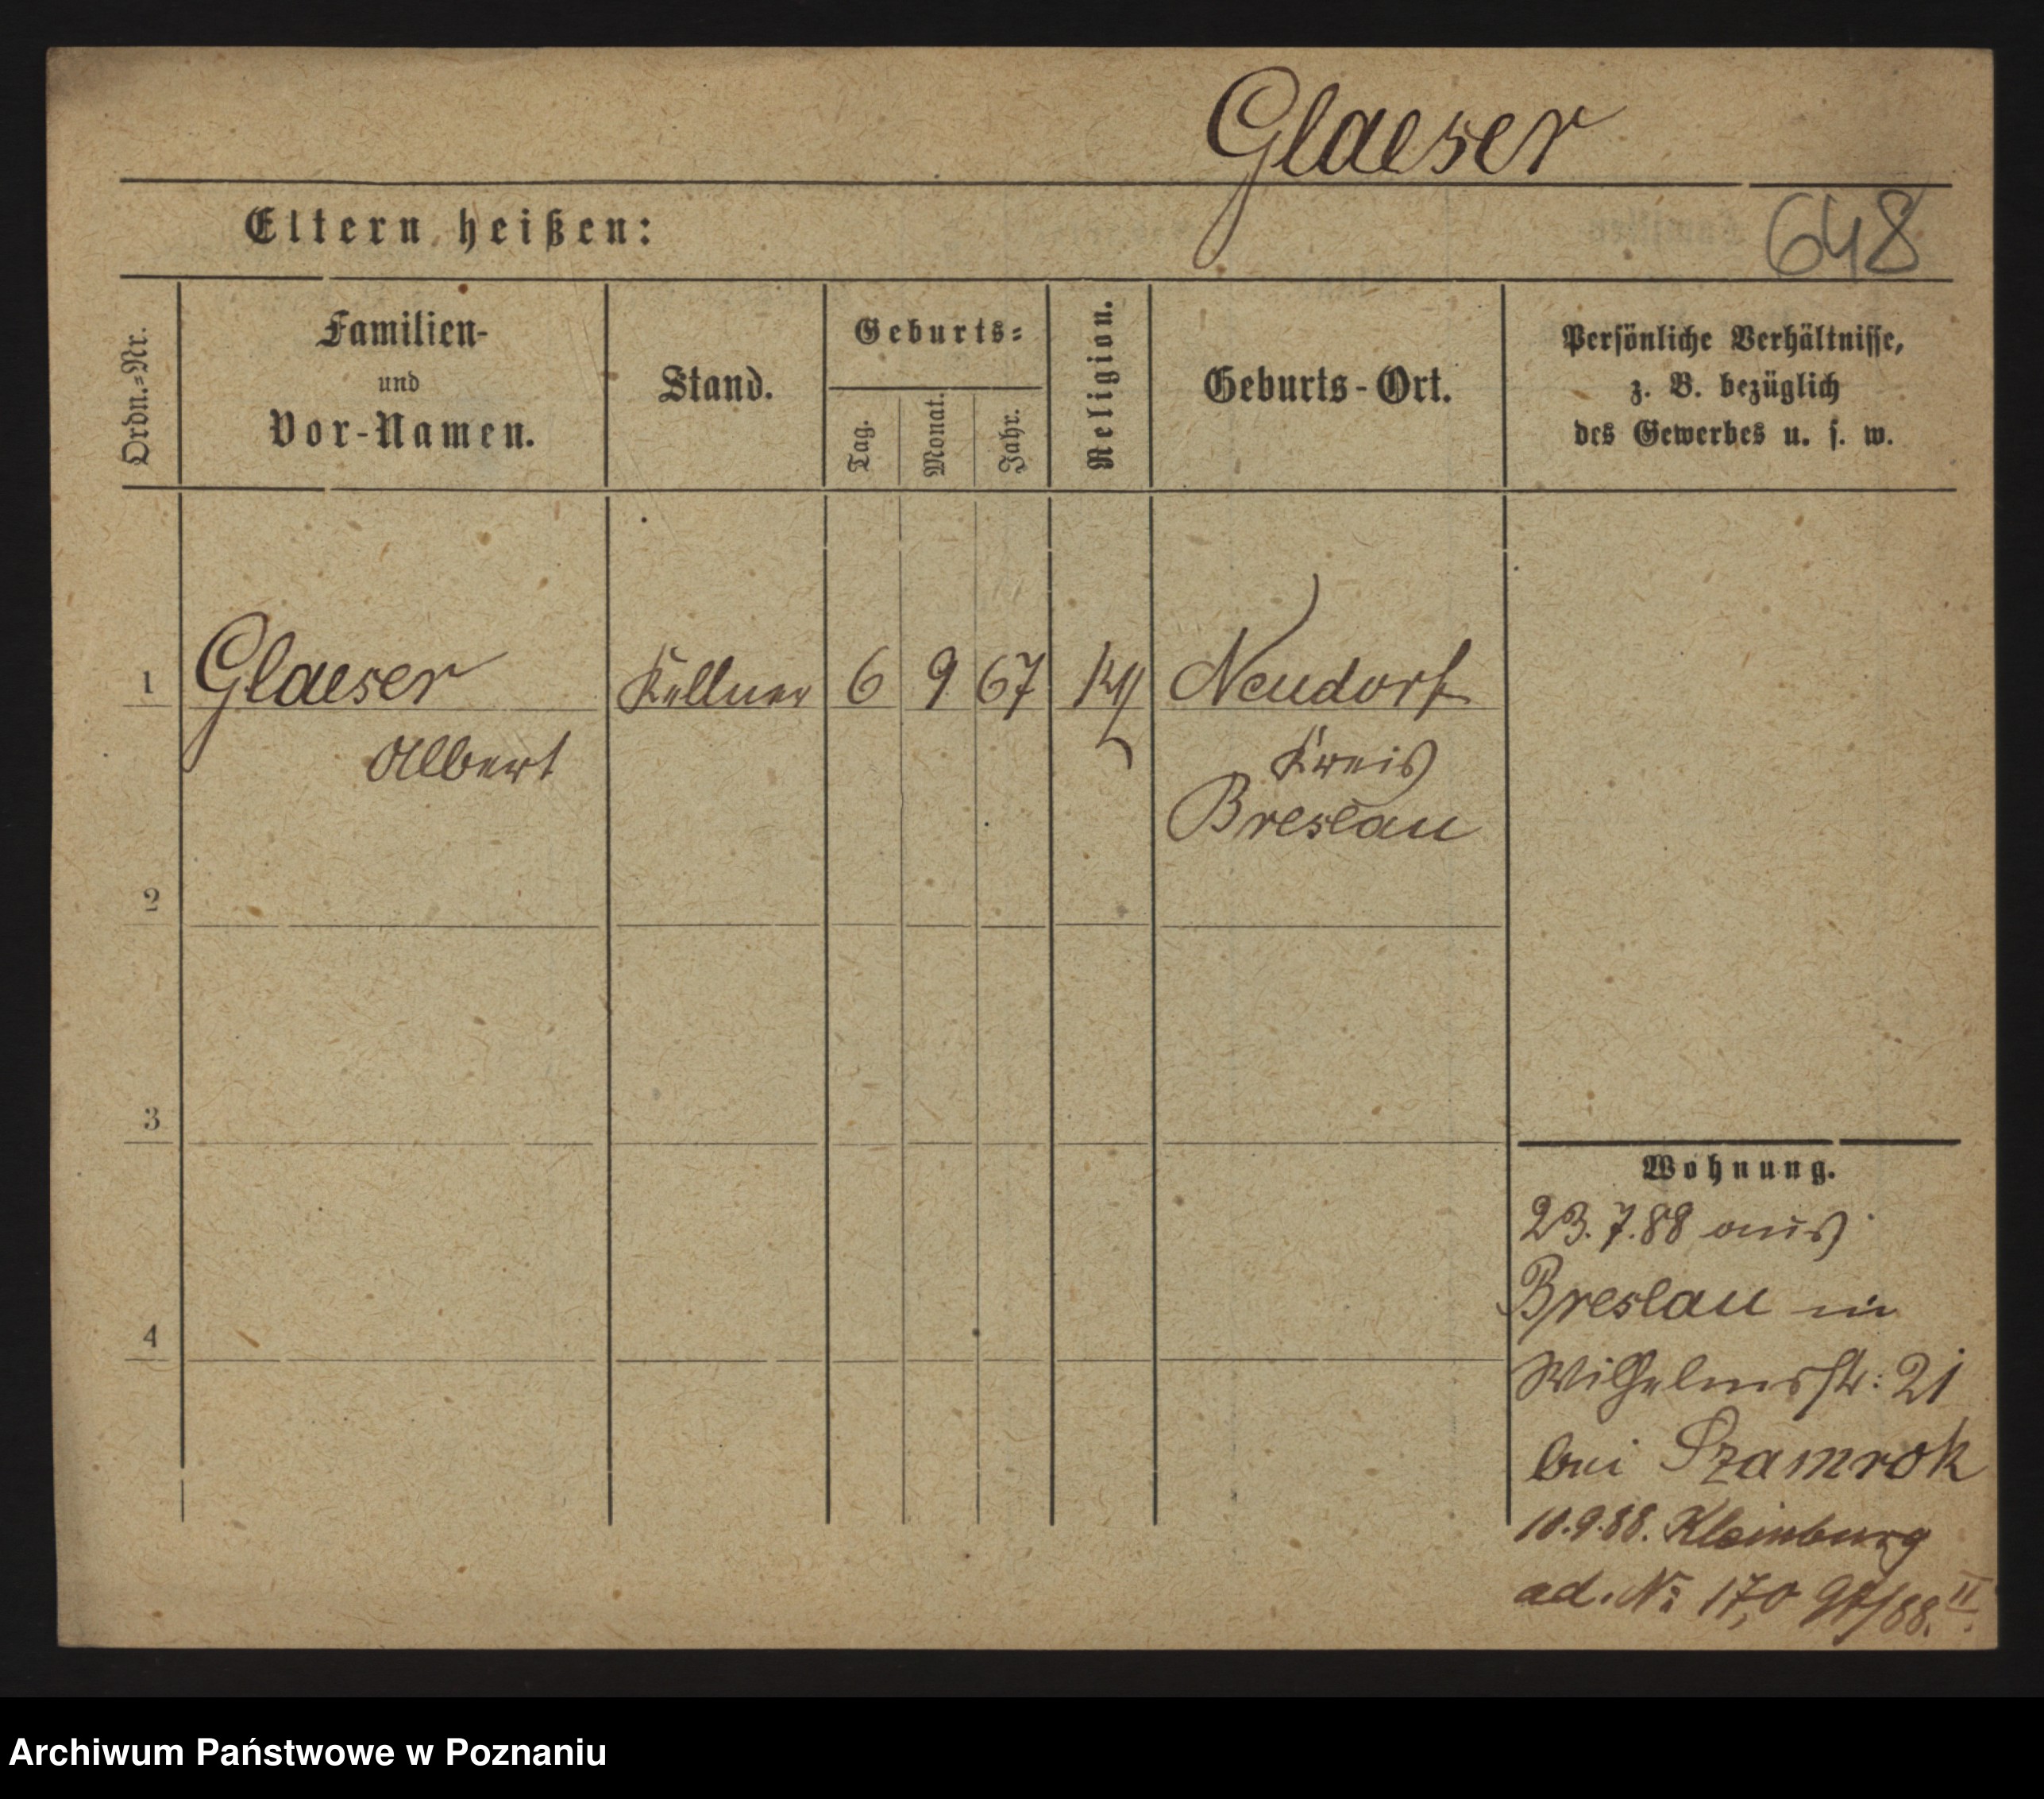 Glaeser
Eltern heißen:
648
Ordn.=Nr.
Familien-
und
Vor-Namen.
Stand.
Geburts=
Tag.
Monat.
Jahr.
Religion.
Geburts-Ort.
Persönliche Verhältnisse,
z. B. bezüglich
des Gewerbes u. s. w.
1 Glaeser Kellner 6 9 67 Neudorf
Albert Kreis
Breslau
2
3
4
Wohnung.
23.7.88 aus
Breslau in
Wilhelmsstr: 21
bei Szamrok
10.9.88. Kleinburg
ad. No 170 /88. II.
Archiwum Państwowe w Poznaniu